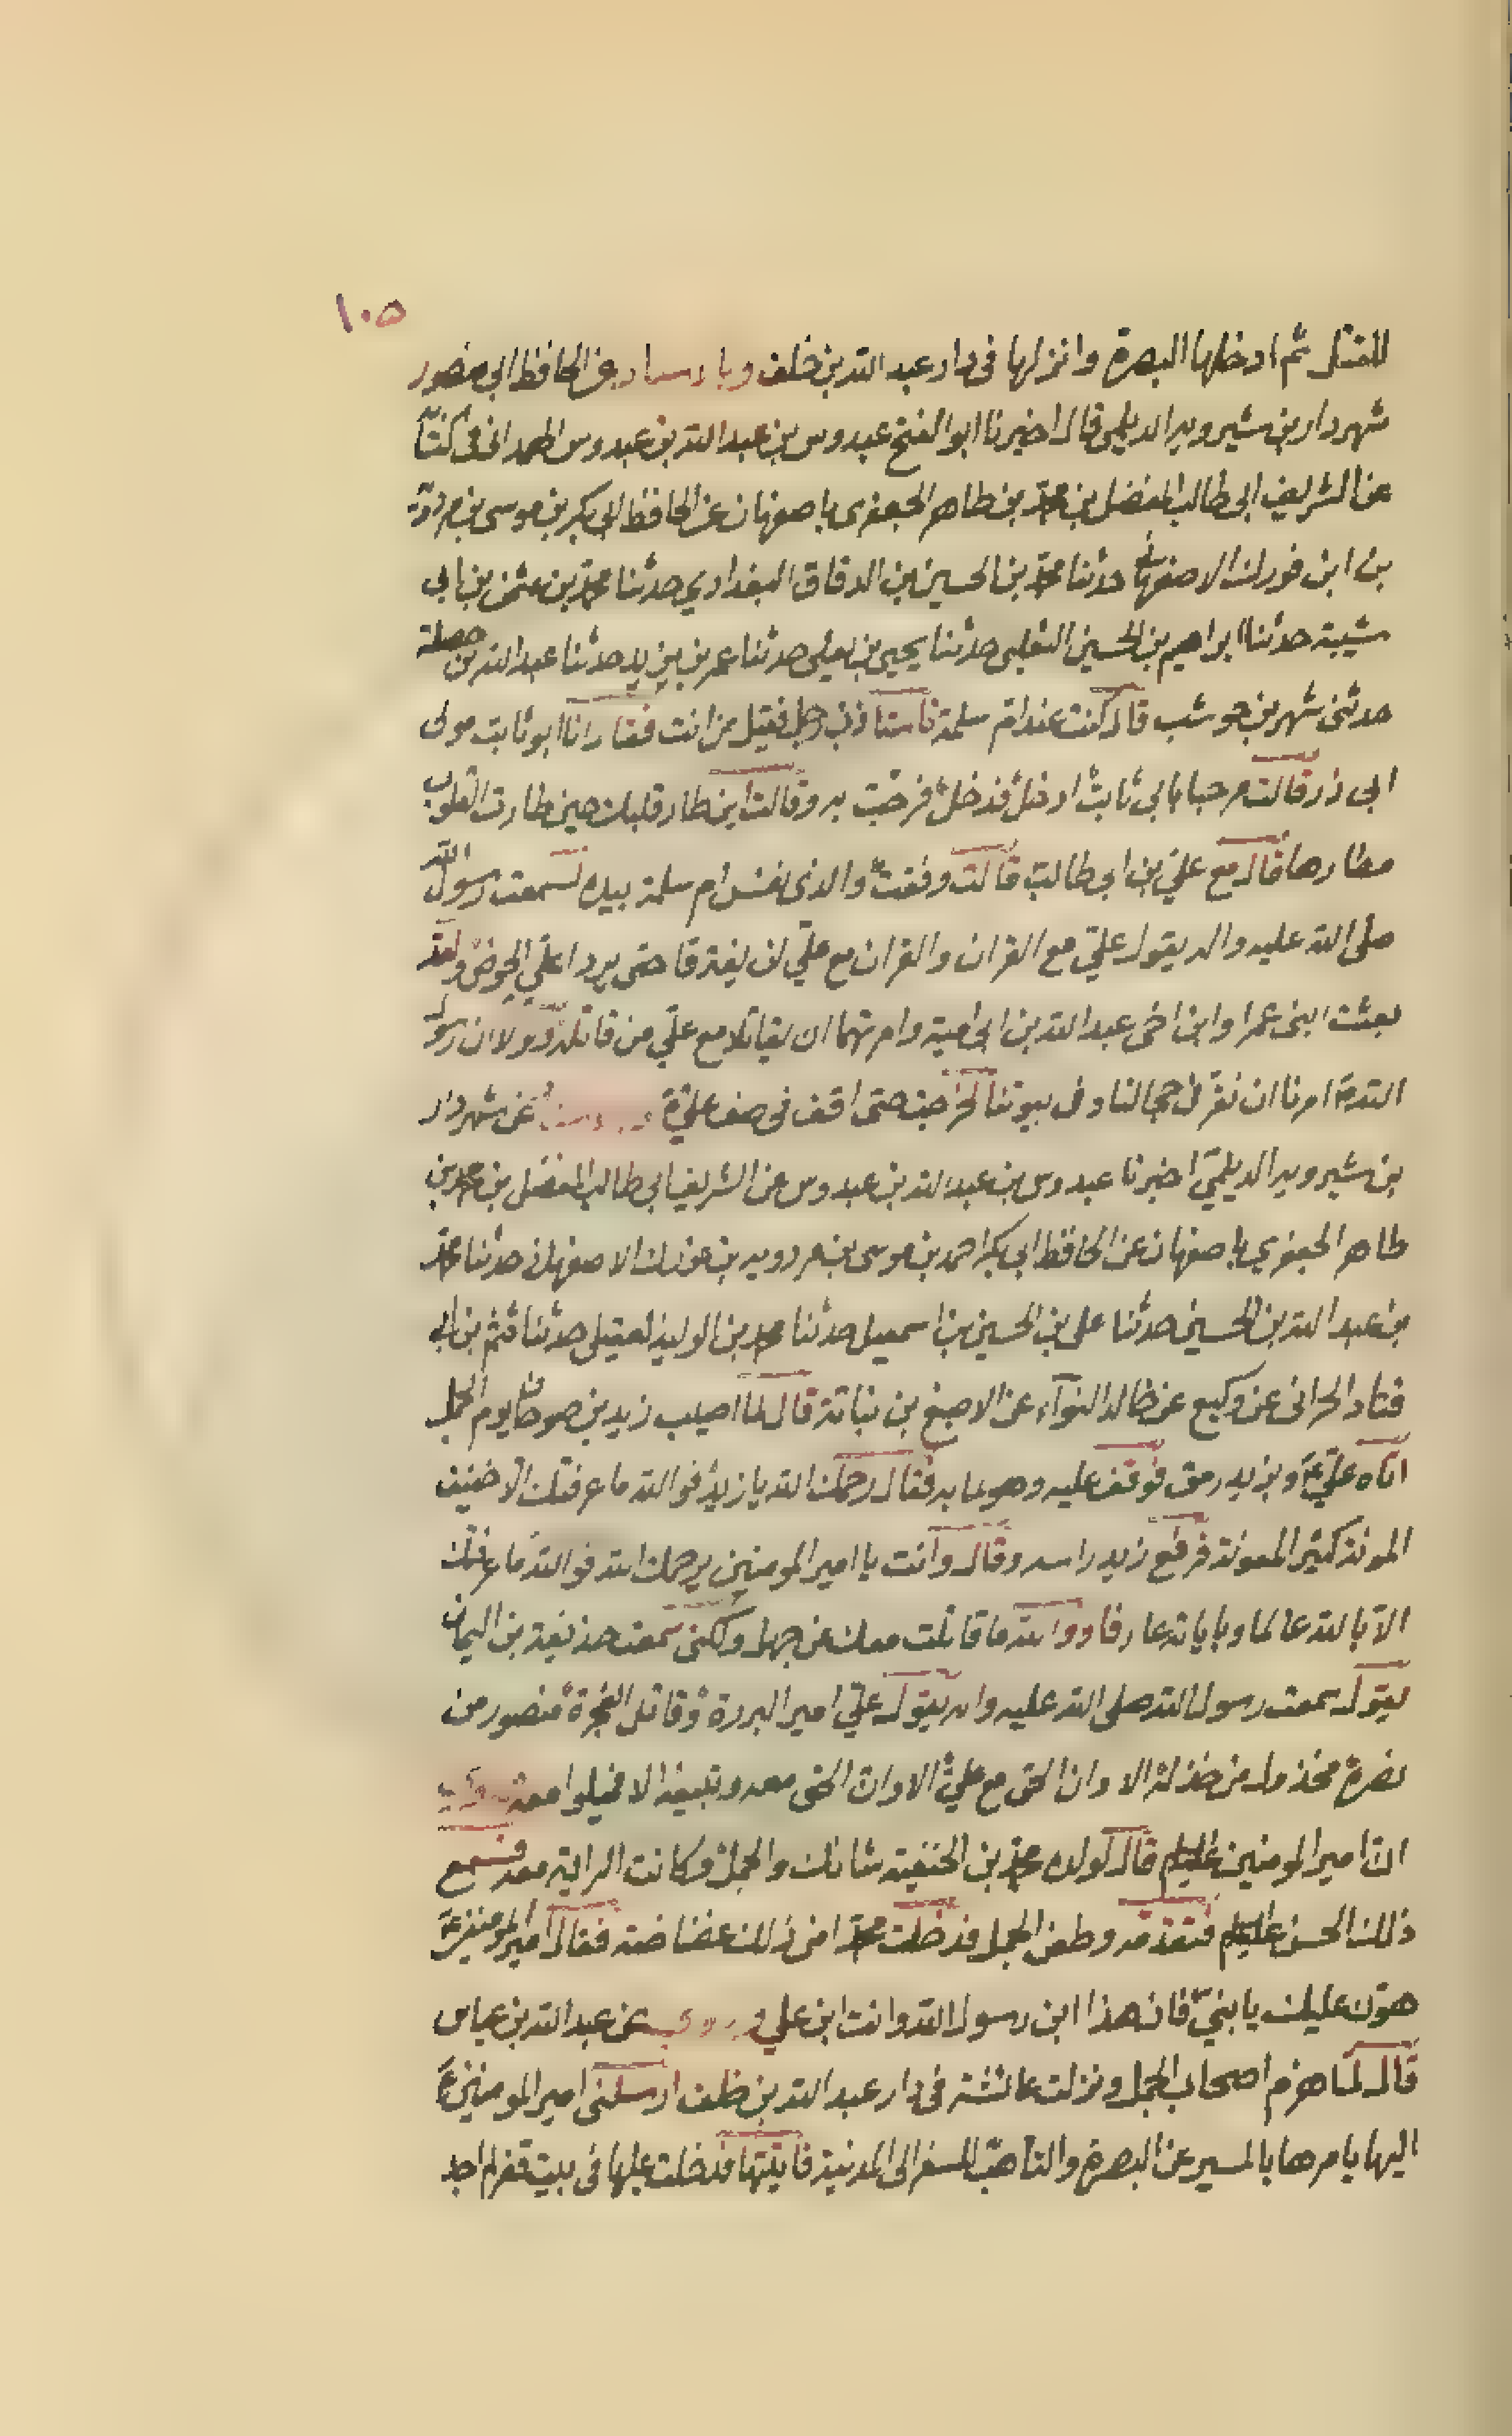 ١٠٥
للقتل ثم ادخلها البصرة وانزلها في دار عبد الله بن خلف وبا عن الحافظ ابي منصور
شهردار بن شيرويه الديلمي قال اخبرنا ابو الفتح عبدوس بن عبد الله بن عبدوس الهمداني في كتابه
عن الشريف ابي طالب المفضل بن محمد بن طاهر الجعفري باصفهان عن الحافظ ابي بكر بن موسى بن مردويه
بن ابن فورك الاصفهاني حدثنا محمد بن الحسين بن الدقاق البغدادي حدثنا محمد بن عثمن بن ابي
شيبة حدثنا ابراهيم بن الحسين التغلبي حدثنا يحيى بن يعلى حدثنا عمر بن يزيد حدثنا عبد الله بن حنظلة
حدثني شهر بن حوشب قال كنت عند ام سلمة فاستاذن رجل فقيل من انت فقال انا ابو ثابت مولى
ابي ذر قالت مرحبا بابي ثابت ادخل فدخل فرحبت به وقالت اين طار قلبك حين طارت القلوب
مطارها قال مع علي بن ابي طالب قالت وفقت والذي نفس ام سلمة بيده لسمعت رسول الله
صلى الله عليه واله يقول علي مع القران والقران مع علي لن يفترقا حتى يردا علي الحوض ولقد
بعثت ابني عمرا وابن اخي عبد الله بن ابي امية وامرتهما ان يقاتلا مع علي من قاتله ولولا ان رسول
الله ص امرنا ان نقر في حجالنا وفي بيوتنا لخرجت حتى اقف في صف علي ع عن شهردار
بن شيرويه الديلمي اخبرنا عبدوس بن عبد الله بن عبدوس عن الشريف ابي طالب المفضل بن محمد بن
طاهر الجعفري باصفهان عن الحافظ ابي بكر احمد بن موسى بن مردويه بن فورك الاصفهاني حدثنا محمد
بن عبد الله بن الحسين حدثنا علي بن الحسين بن اسمعيل حدثنا محمد بن الوليد العقيلي حدثنا قثم بن ابي
قتادة الحراني عن وكيع عن خالد النواء عن الاصبغ بن نباتة قال لما اصيب زيد بن صوحان يوم الجمل
اتاه علي ع وبه رمق فوقف عليه وهو لما به فقال رحمك الله يا زيد فوالله ما عرفتك الا خفيف
المونة كثير المعونة فرفع زيد راسه وقال وانت يا امير المومنين يرحمك الله فوالله ما عرفتك
الا بالله عالما وباياته عارفا ووالله ما قاتلت معك عن جهل ولكني سمعت حذيفة بن اليمان
يقول سمعت رسول الله صلى الله عليه واله يقول علي امير البررة وقاتل الفجرة منصور من
نصره مخذول من خذله الا وان الحق مع علي الا وان الحق معه ويتبعه الا فميلوا معه
ان امير المومنين عليه السلام قال لولده محمد بن الحنفية شانك والجمل وكانت الراية معه فسمع
ذلك الحسن عليه السلام فتقدمه وطعن الجمل فدخلت محمدا من ذلك غضاضة فقال امير المومنين ع
هون عليك يا بني فان هذا ابن رسول الله وانت ابن علي عن عبد الله بن عباس
قال لما هزم اصحاب الجمل ونزلت عائشة في دار عبد الله بن خلف ارسلني امير المومنين ع
اليها يامرها بالمسير عن البصرة والتاهب للسفر الى المدينة فاتيتها فدخلت عليها في بيت قفر لم اجد